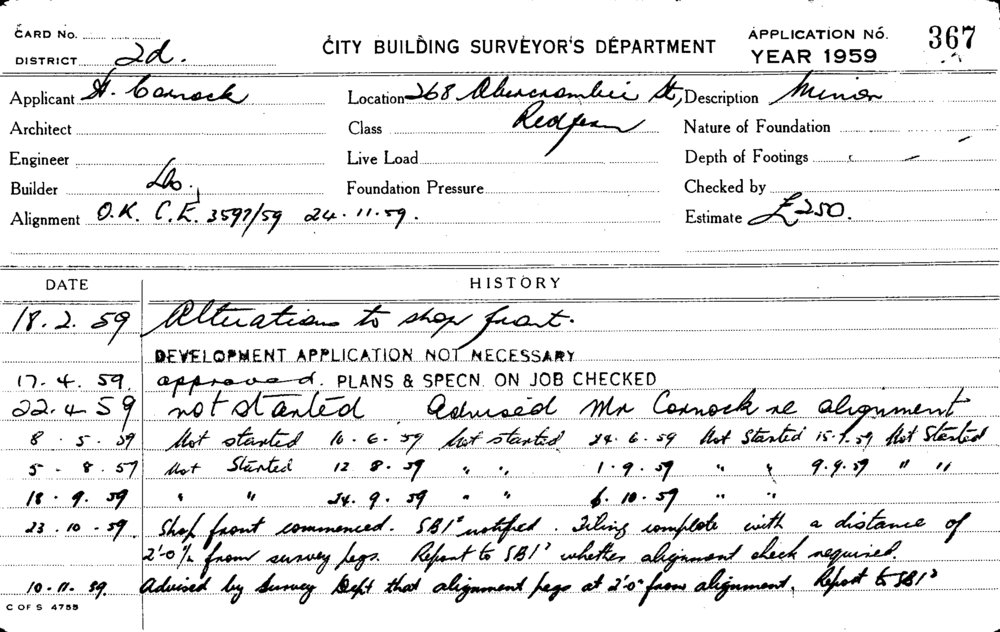 CARD No.
CITY BUILDING SURVEYOR'S DEPARTMENT
APPLICATION No. 367
DISTRICT 2d.
YEAR 1959
Applicant H. Cornock Location 268 Abercrombie St, Description Minor
Architect Class Redfern Nature of Foundation
Engineer Live Load Depth of Footings
Builder Do. Foundation Pressure Checked by
Alignment O.K. C.E. 3597/59 24.11.59. Estimate £250.
DATE HISTORY
18.2.59 Alterations to shop front.
DEVELOPMENT APPLICATION NOT NECESSARY
17.4.59. approved. PLANS & SPECN. ON JOB CHECKED
22.4.59 not started Advised Mr Cornock re alignment
8.5.59 Not started 10.6.59 Not started 24.6.59 Not Started 15.7.59 Not Started
5.8.59 Not Started 12.8.59 " " 1.9.59 " " 9.9.59 " "
18.9.59 " " 24.9.59 " " 6.10.59 " "
23.10.59. Shop front commenced. SBI notified. Tiling complete with a distance of
2'0½ from survey pegs. Report to SBI whether alignment check required.
10.11.59. Advised by Survey Dept that alignment pegs at 2'0" from alignment. Report to SBI
C OF S 4755